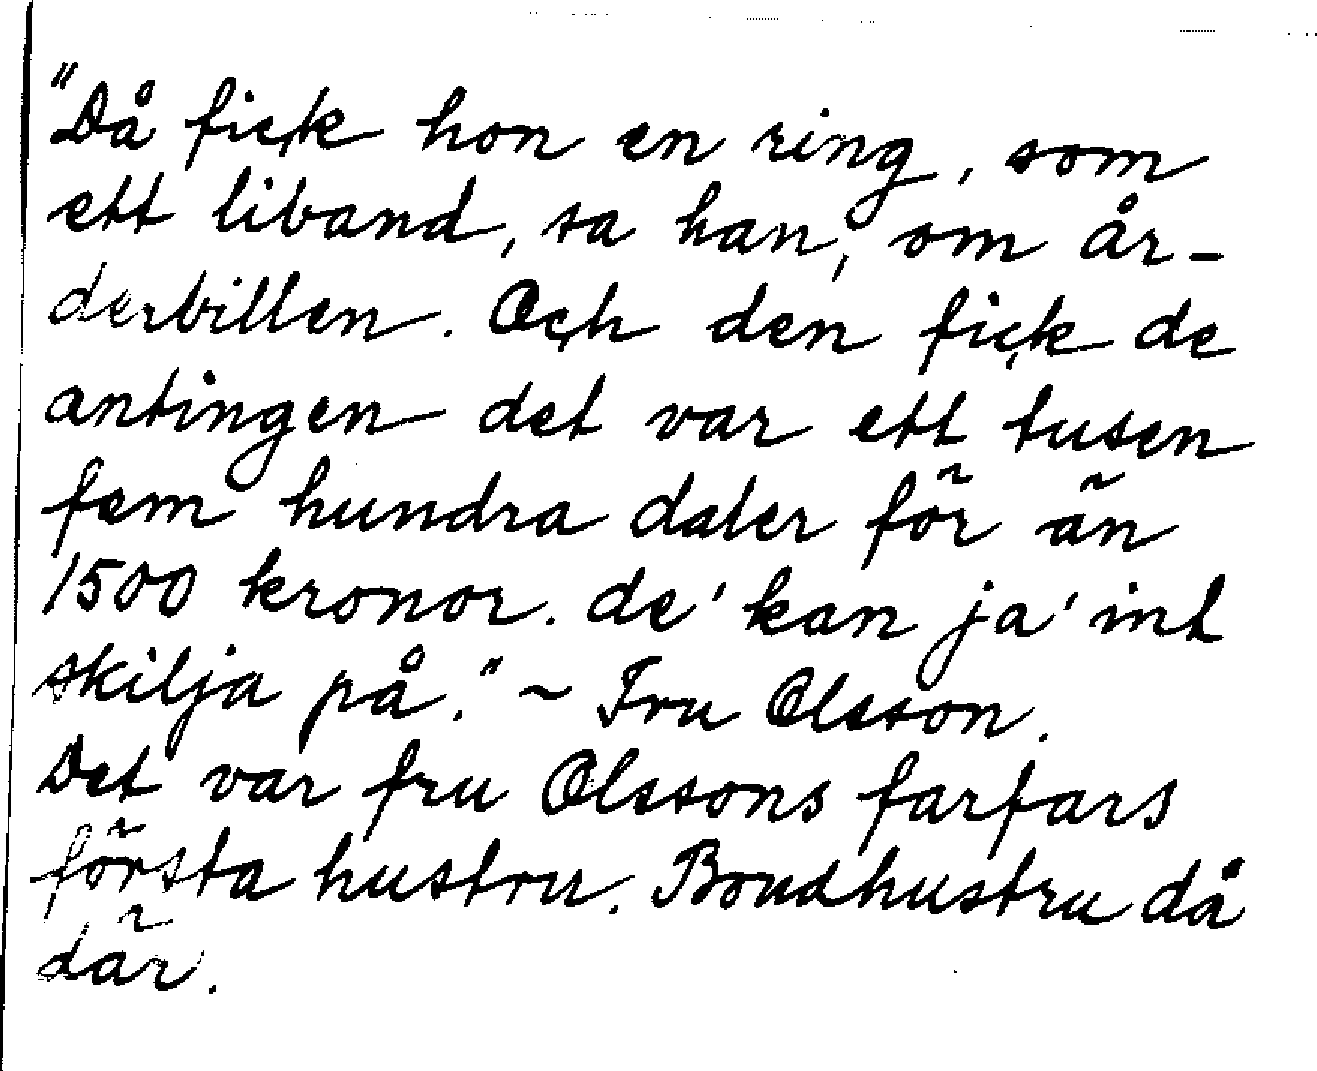 "Då fick hon en ring, som
ett liband, sa han, om år-
derbillen. Och den fick de
antingen det var ett tusen
fem hundra daler för än
1500 kronor. de' kan ja' int
skilja på." ~ Fru Olsson.
Det var fru Olssons farfars
första hustru. Bondhustru då
där.